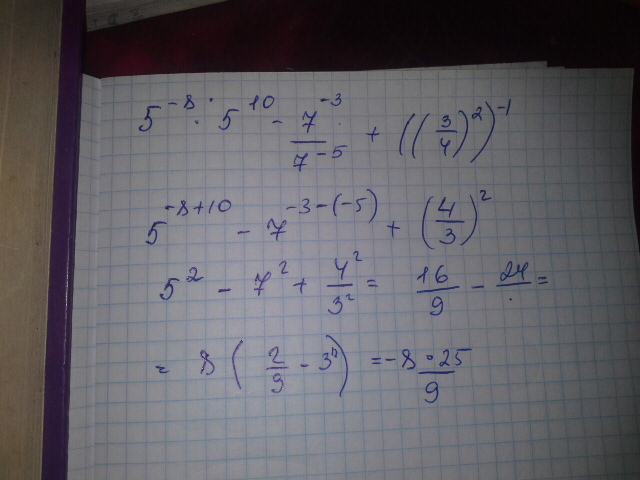 5^{-8} · 5^{10} - \frac{7^{-3}}{7^{-5}} + ((\frac{3}{4})^2)^{-1}
5^{-8+10} - 7^{-3-(-5)} + (\frac{4}{3})^2
5^2 - 7^2 + \frac{4^2}{3^2} = \frac{16}{9} - \frac{24}{.} =
= 8(\frac{2}{9} - 3) = \frac{-8·25}{9}